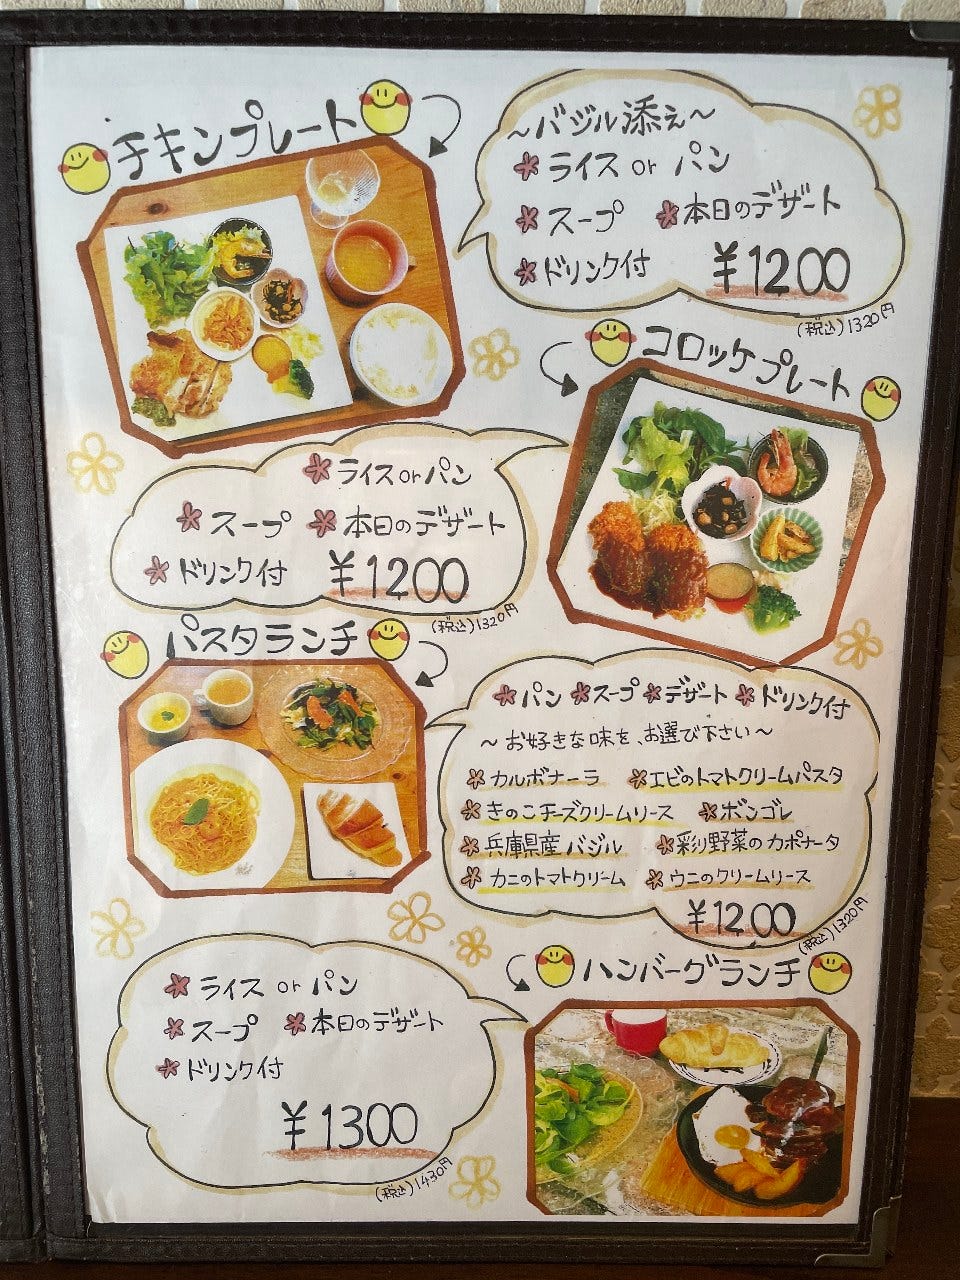 チキンプレート
～バジル添え～
ライス or パン
スープ 本日のデザート
ドリンク付 ¥1200
(税込)1320円
コロッケプレート
ライス or パン
スープ 本日のデザート
ドリンク付 ¥1200
(税込)1320円
パスタランチ
パン スープ デザート ドリンク付
～お好きな味を、お選び下さい～
カルボナーラ エビのトマトクリームパスタ
きのこチーズクリームソース ボンゴレ
兵庫県産バジル 彩り野菜のカポナータ
カニのトマトクリーム ウニのクリームソース
¥1200
(税込)1320円
ハンバーグランチ
ライス or パン
スープ 本日のデザート
ドリンク付
¥1300
(税込)1430円